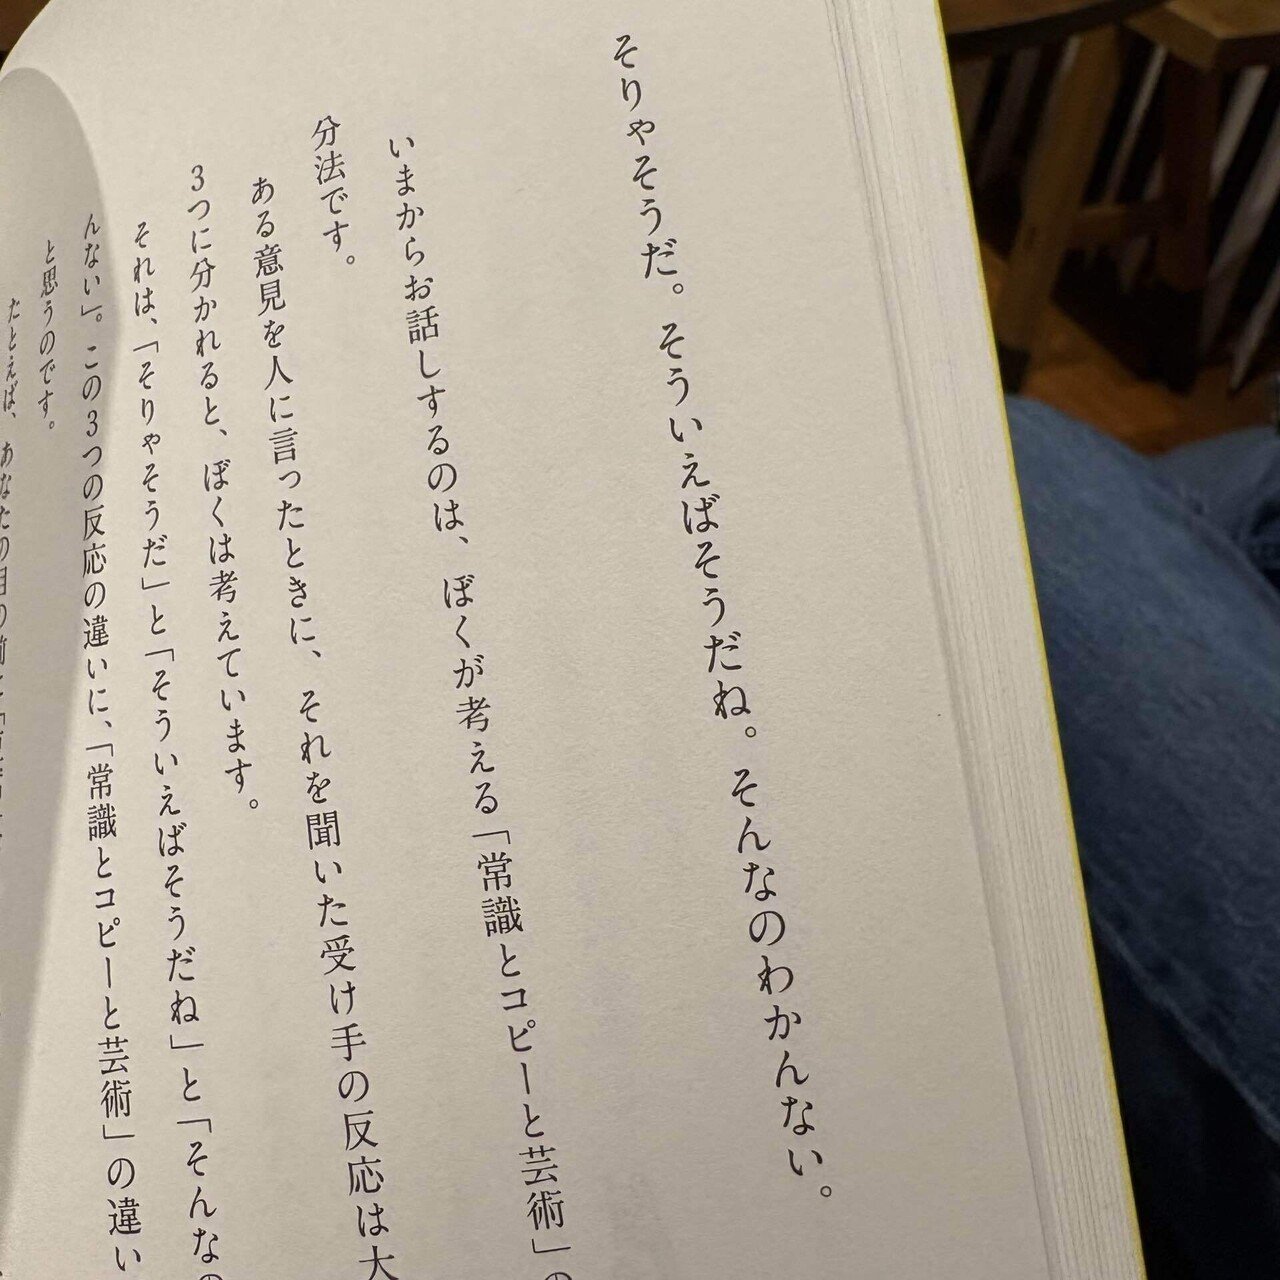 そりゃそうだ。そういえばそうだね。そんなのわかんない。
いまからお話しするのは、ぼくが考える「常識とコピーと芸術」の
分法です。
ある意見を人に言ったときに、それを聞いた受け手の反応は大
3つに分かれると、ぼくは考えています。
それは、「そりゃそうだ」と「そういえばそうだね」と「そんなの
んない」。この3つの反応の違いに、「常識とコピーと芸術」の違い
と思うのです。
たとえば、あなたの目の前に「